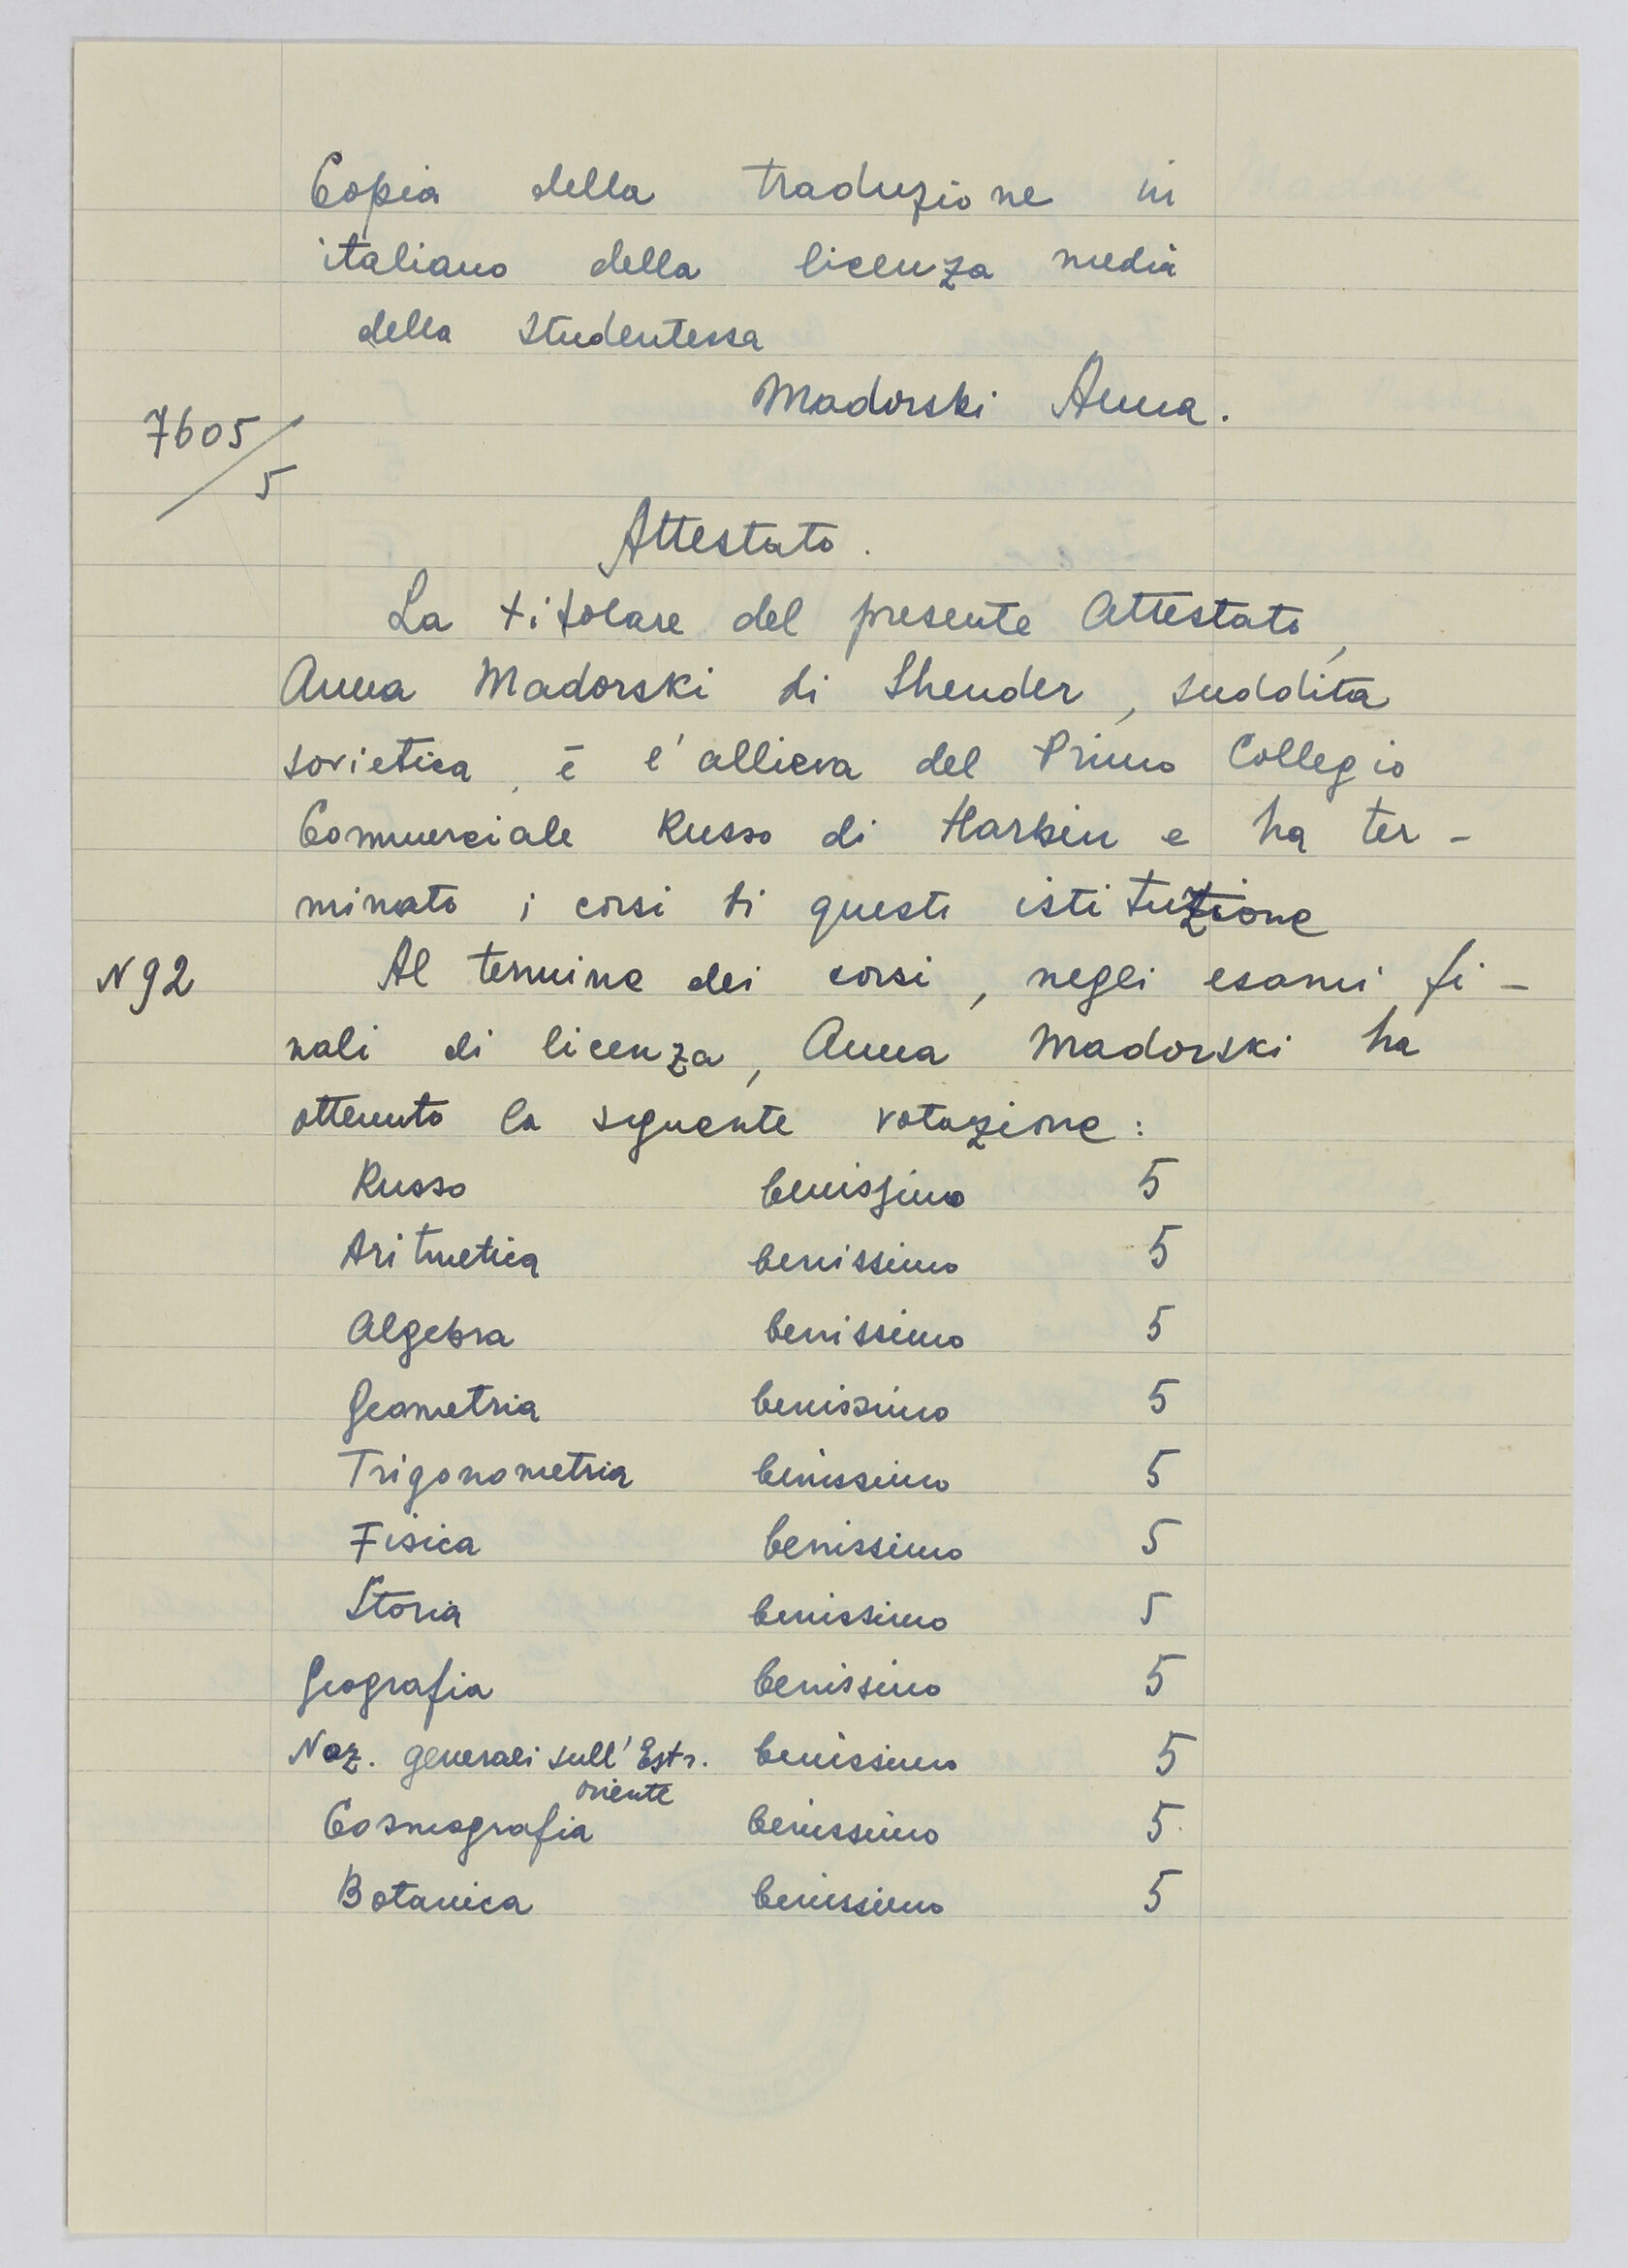 Copia della traduzione in
italiano della licenza media
della studentessa
Madorski Anna.
7605/5
Attestato.
La titolare del presente attestato,
Anna Madorski di Shender, suddita
sovietica, è l'allieva del Primo Collegio
Commerciale Russo di Harbin e ha ter-
minato i corsi di questa istituzione
N 92
Al termine dei corsi, negli esami fi-
nali di licenza, Anna Madorski ha
ottenuto la seguente votazione:
Russo benissimo 5
Aritmetica benissimo 5
Algebra benissimo 5
Geometria benissimo 5
Trigonometria benissimo 5
Fisica benissimo 5
Storia benissimo 5
Geografia benissimo 5
Noz. generali sull'Estr. benissimo 5
oriente
Cosmografia benissimo 5
Botanica benissimo 5